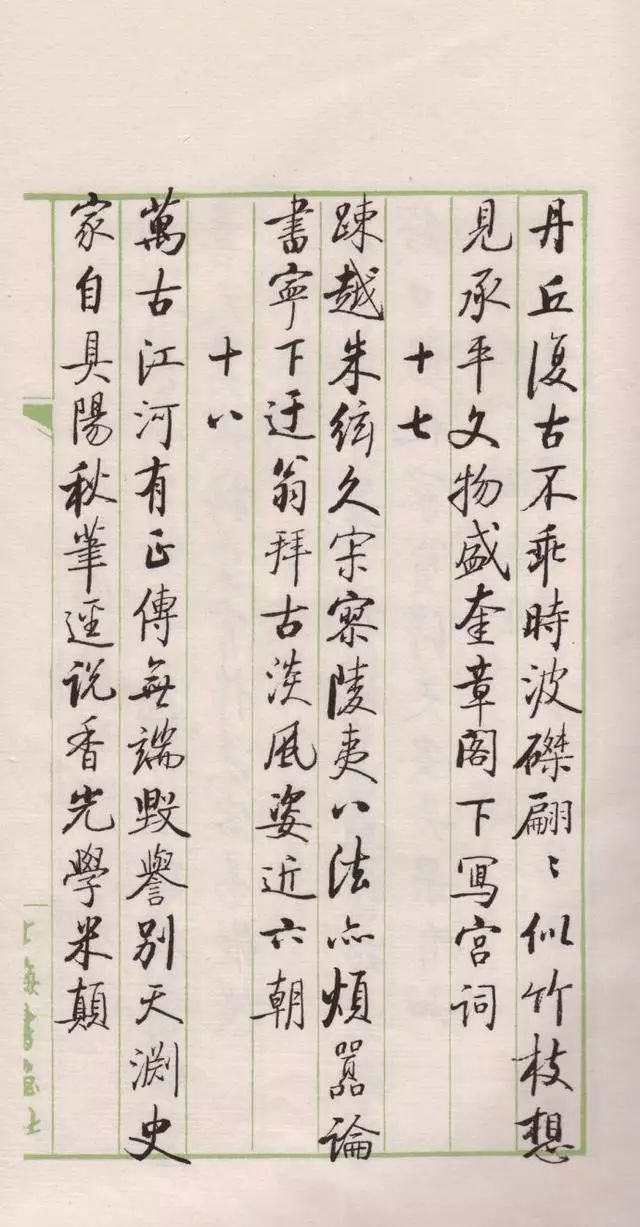 丹丘復古不乖時波磔翩〻似竹枝想
見承平文物盛奎章閣下寫宮詞
十七
踈越朱絃久寂寥陵夷八法亦煩囂論
書寧下迂翁拜古淡風姿近六朝
十八
萬古江河有正傳無端毀譽別天淵史
家自具陽秋筆逕說香光學米顛
上海書畫社